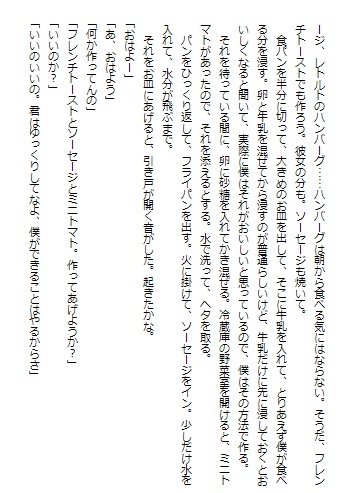 ージ、レトルトのハンバーグ……ハンバーグは朝から食べる気にはならない。そうだ、フレン
チトーストでも作ろう。彼女の分も。ソーセージも焼いて。
　食パンを半分に切って、大きめのお皿を出して、そこに牛乳を入れて、とりあえず僕が食べ
る分を浸す。卵と牛乳を混ぜてから浸すのが普通らしいけど、牛乳だけに先に浸しておくとお
いしくなると聞いて、実際に僕はそれがおいしいと思っているので、僕はその方法で作る。
　それを待っている間に、卵に砂糖を入れてかき混ぜる。冷蔵庫の野菜室を開けると、ミニト
マトがあったので、それを添えるとする。水で洗って、ヘタを取る。
　パンをひっくり返して、フライパンを出す。火に掛けて、ソーセージをイン。少しだけ水を
入れて、水分が飛ぶまで。
　それをお皿にあげると、引き戸が開く音がした。起きたかな。
「おはよー」
「あ、おはよう」
「何か作ってんの」
「フレンチトーストとソーセージとミニトマト。作ってあげようか？」
「いいのか？」
「いいのいいの。君はゆっくりしてなよ、僕ができることはやるからさ」